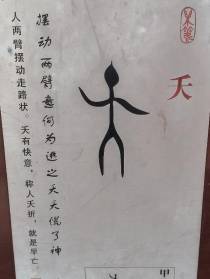 夭
摆动两臂意何为逃之夭夭慌了神
人两臂摆动走路状。夭有快意，称人夭折，就是早亡
甲